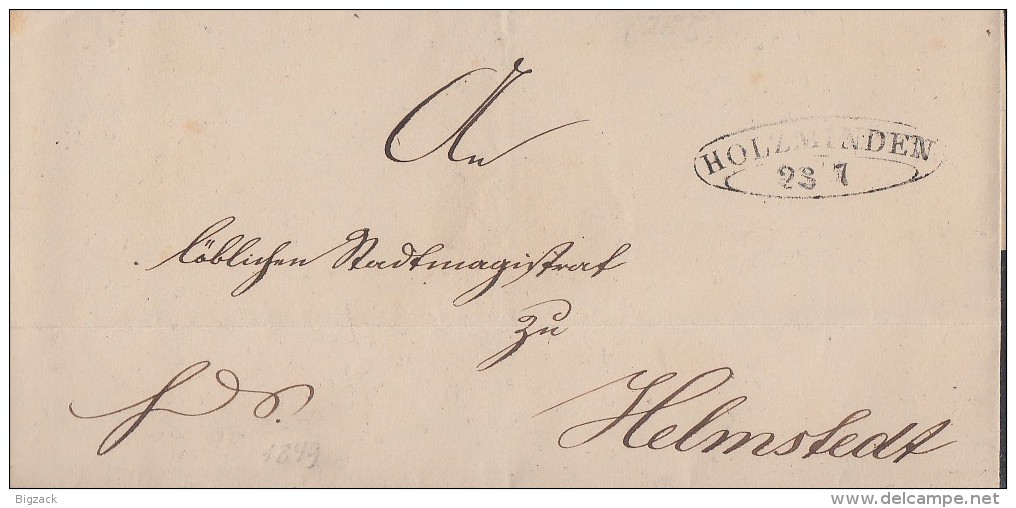 An
HOLZMINDEN
28 7
löblichen Stadtmagistrat
zu
Helmstedt
1849
Bigzack
delcampe.net